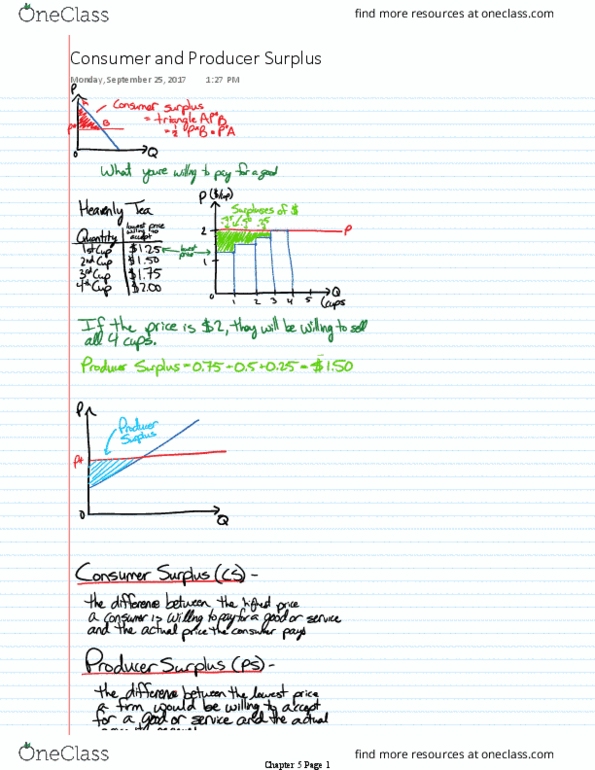 OneClass find more resources at oneclass.com
Consumer and Producer Surplus
Monday, September 25, 2017 1:27 PM
P
A
Consumer surplus
= triangle AP*B
= ½ P*B • P*A
P* B
0 Q
What you're willing to pay for a good
Heavenly Tea
Quantity lowest price willing to accept
1st Cup $1.25
2nd Cup $1.50
3rd Cup $1.75
4th Cup $2.00
lowest price
P ($/cup)
Surpluses of $
2 P
1
0 1 2 3 4 5 Q
(cups
If the price is $2, they will be willing to sell
all 4 cups.
Producer Surplus = 0.75 + 0.5 + 0.25 = $1.50
P
Producer
Surplus
P*
0 Q
Consumer Surplus (CS) -
the difference between the highest price
a consumer is willing to pay for a good or service
and the actual price the consumer pays
Producer Surplus (PS) -
the difference between the lowest price
a firm would be willing to accept
for a good or service and the actual
OneClass find more resources at oneclass.com
Chapter 5 Page 1